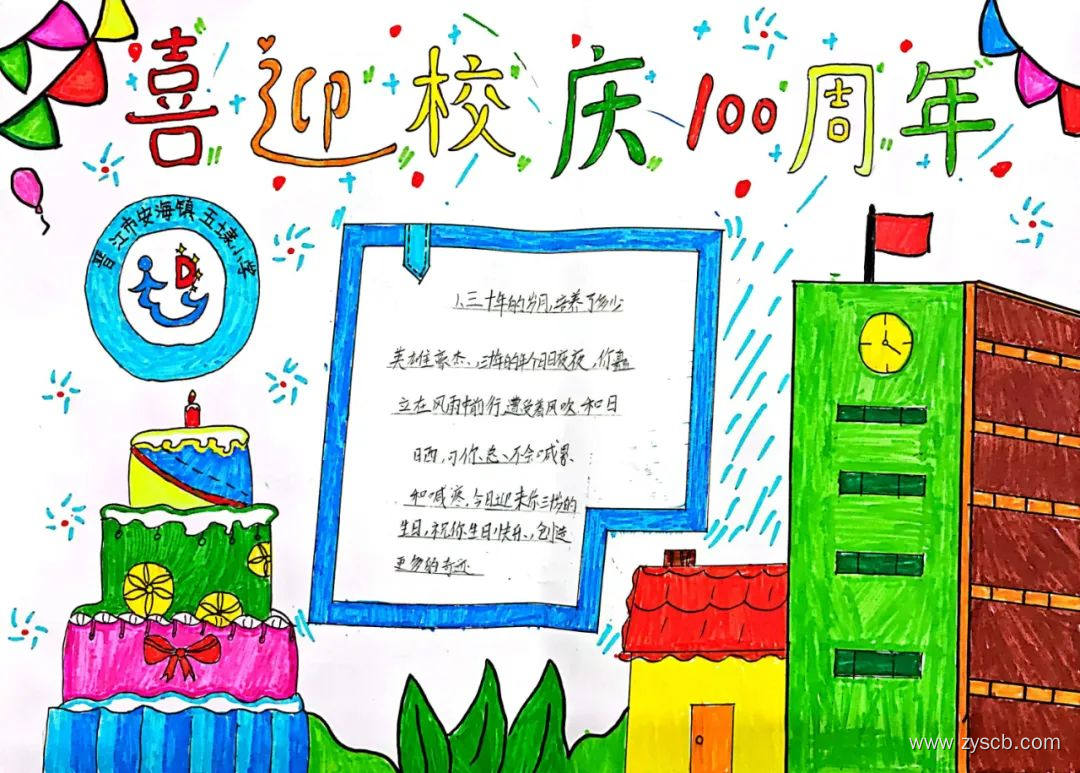 喜迎校庆100周年
晋江市安海镇五埭小学
1、三十年的岁月,培养了多少
英雄豪杰、三年的年个日夜夜,你矗
立在风雨中前行,遭受着风吹和日
日西,可你总、不会喊累、
和喊寒,今日迎来你三岁的
生日,祝你生日快乐、,创造
更多的奇迹
www.zyscb.com